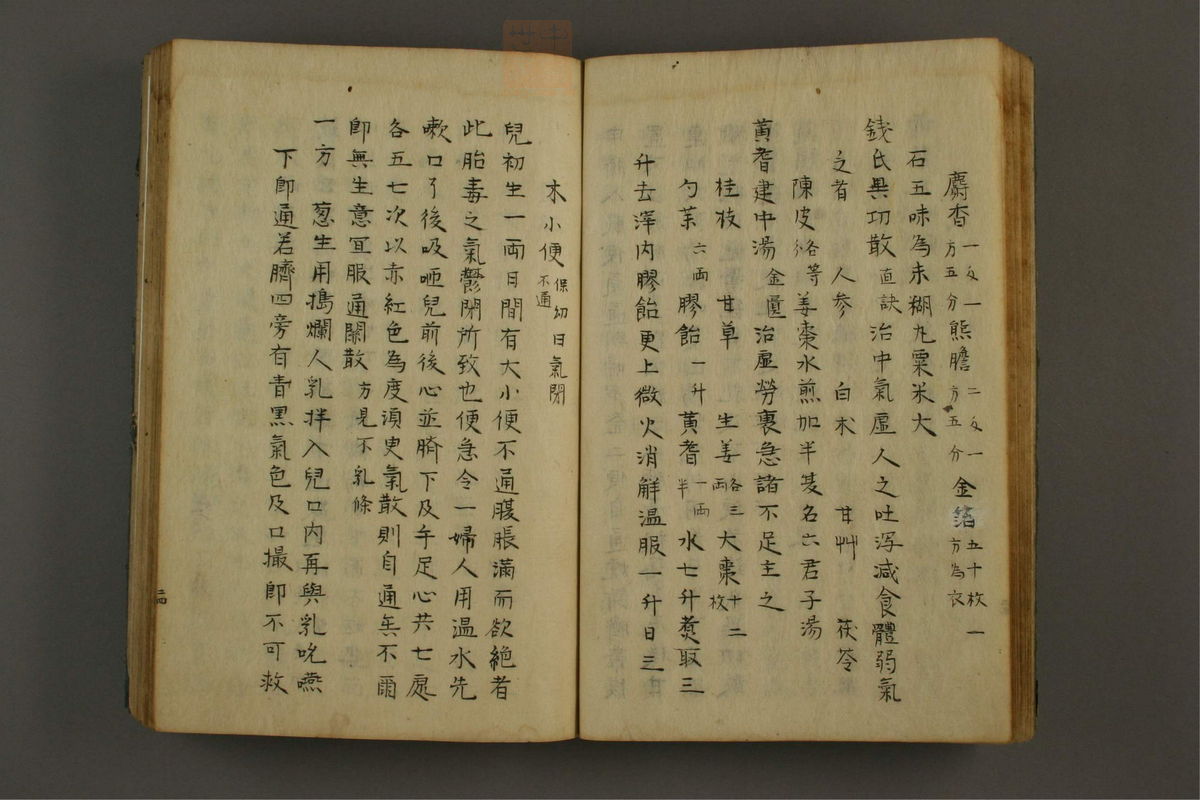 麝香一文一方五分熊膽二文一方五分金箔五十枚一方為衣
石五味為末糊丸粟米大
錢氏異功散直訣治中氣虛人之吐瀉減食體弱氣
之者 人参 白朮 甘艸 茯苓
陳皮各等分姜棗水煎加半夏名六君子湯
黄耆建中湯金匱治虛勞裏急諸不足主之
桂枝 甘草 生姜各三両大棗十二枚
勺茱六両膠飴一升黄耆一両半水七升煑取三
升去滓内膠飴更上微火消解温服一升日三
大小便不通保幼曰氣閉
兒初生一両日間有大小便不通腹脹滿而欲絶者
此胎毒之氣鬱閉所致也便急令一婦人用温水先
嗽口了後吸咂兒前後心並臍下及手足心共七處
各五七次以赤紅色為度須臾氣散則自通矣不爾
即無生意宜服通關散方見不乳條
一方葱生用搗爛人乳拌入兒口内再與乳吮嚥
下即通若臍四旁有青黒氣色及口撮即不可救